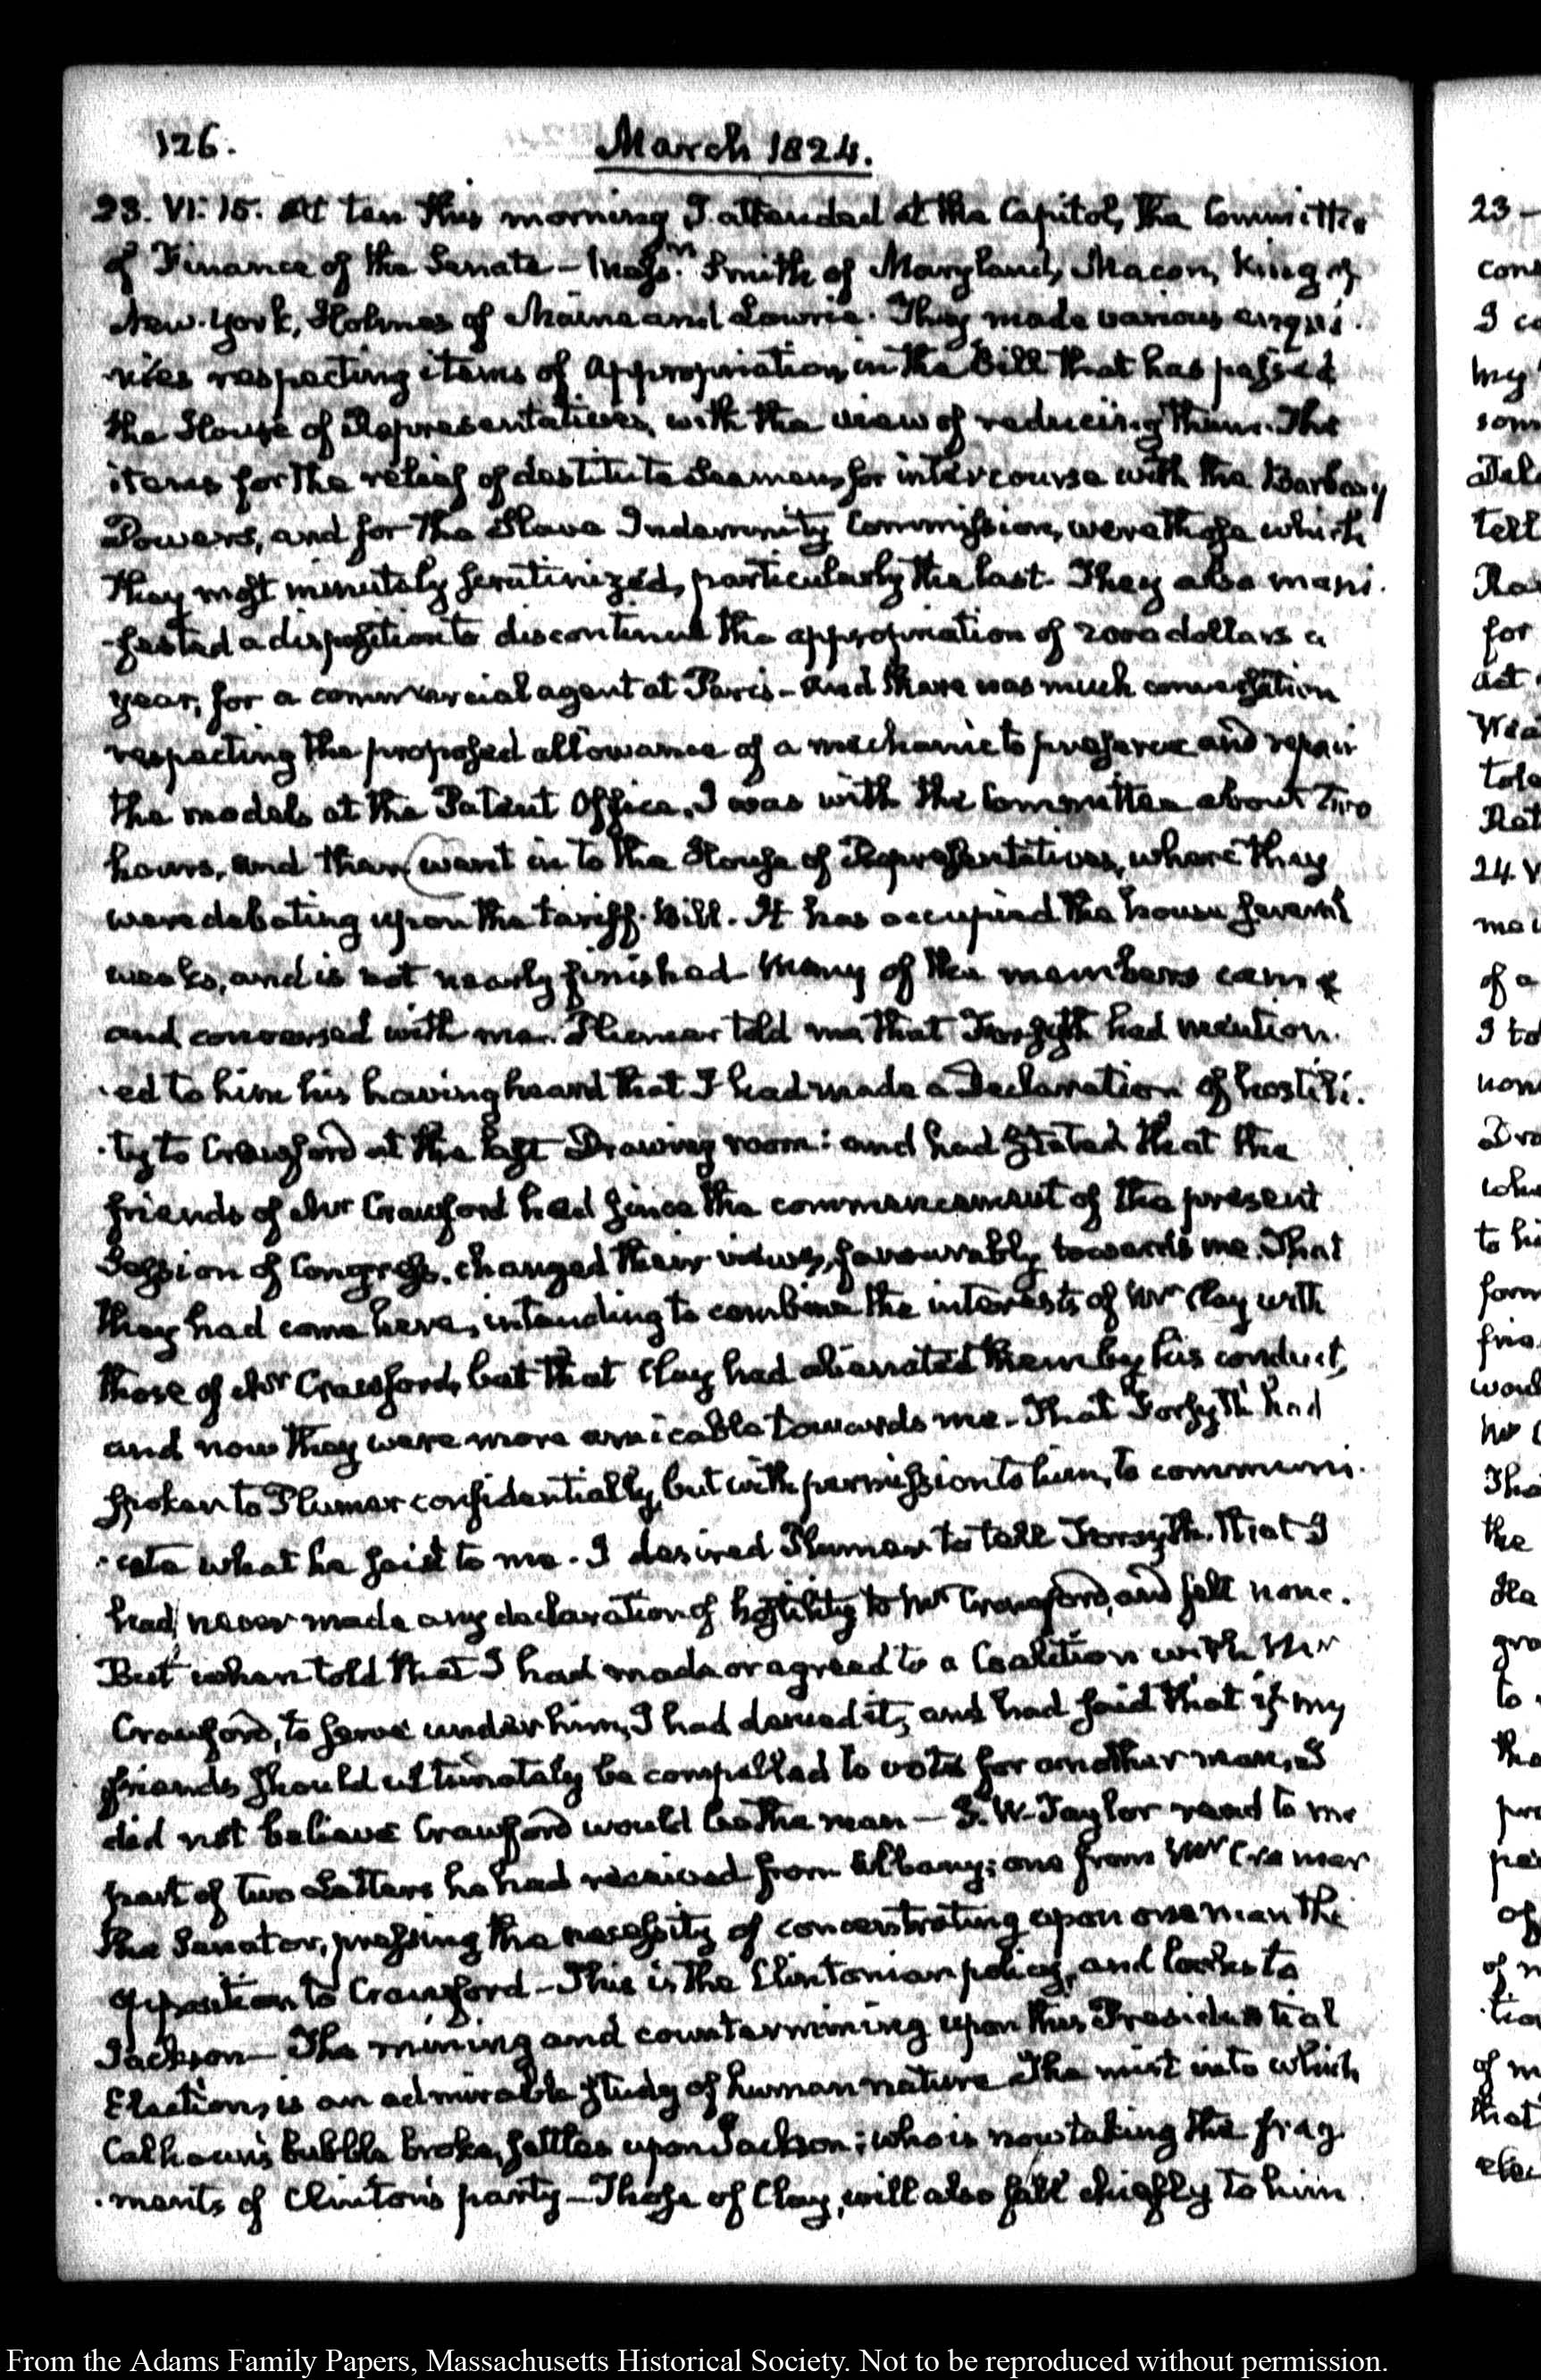 126.
March 1824.
23. VI: 15. At ten this morning I attended at the Capitol, the Committee
of Finance of the Senate – Mess.rs Smith of Maryland, Macon, King of
New-York, Holmes of Maine and Lowrie. They made various enqui-
-ries respecting items of Appropriation in the Bill that has passed
the House of Representatives, with the view of reducing them. The
items for the relief of destitute Seamen, for intercourse with the Barbary
Powers, and for the Slave Indemnity Commission, were those which
they most minutely scrutinized, particularly the last. They also mani-
-fested a disposition to discontinue the appropriation of 2000 dollars a
year, for a commercial agent at Paris – and there was much conversation
respecting the proposed allowance of a mechanic to preserve and repair
the models at the Patent Office. I was with the Committee about two
hours, and then went in to the House of Representatives, where they
were debating upon the tariff-Bill. It has occupied the house several
weeks, and is not nearly finished. Many of the members came
and conversed with me. Plumer told me that Forsyth had mention-
-ed to him his having heard that I had made a Declaration of hostili-
-ty to Crawford at the last Drawing room: and had stated that the
friends of Mr Crawford had since the commencement of the present
Session of Congress, changed their views, favourably towards me. That
they had come here, intending to combine the interests of Mr Clay with
those of Mr Crawford, but that Clay had alienated them by his conduct,
and now they were more amicable towards me. That Forsyth had
spoken to Plumer confidentially, but with permission to him, to communi-
-cate what he said to me. I desired Plumer to tell Forsyth, that I
had never made any declaration of hostility to Mr Crawford, and felt none.
But when told that I had made or agreed to a Coalition with Mr
Crawford, to serve under him, I had denied it, and had said that if my
friends should ultimately be compelled to vote for another man, I
did not believe Crawford would be the man – J. W. Taylor read to me
part of two Letters he had received from Albany; one from Mr Cramer
the Senator, pressing the necessity of concentrating upon one man the
opposition to Crawford – This is the Clintonian policy, and looks to
Jackson – The mining and countermining upon this Presidential
Election, is an admirable study of human nature. The mist into which
Calhoun's bubble broke, settles upon Jackson; who is now taking the frag-
-ments of Clinton's party – Those of Clay, will also fall chiefly to him
23 –
I c
my
som
tell
for
act
24 V
of a
I to
to hi
form
the
to
of
of m
that
From the Adams Family Papers, Massachusetts Historical Society. Not to be reproduced without permission.